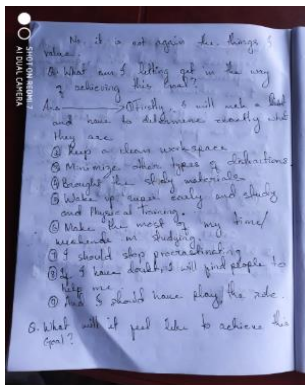 No, it is not again the things I
value.
Q. What am I letting get in the way
of achieving this Goal?
Ans → Firstly, I will make a list
and have to determine exactly what
they are
① Keep a clean workspace
② Minimize other types of distractions.
Brought the study materials
⑤ Wake up early and study
and Physical Training.
⑥ Make the most of my time/
weekends in studying
⑦ I should stop procrastinating
⑧ If I have doubt, I will find people to
help me
⑨ And I should have play the role.
Q. What will it feel like to achieve this
Goal?
SHOT ON REDMI 7
AI DUAL CAMERA